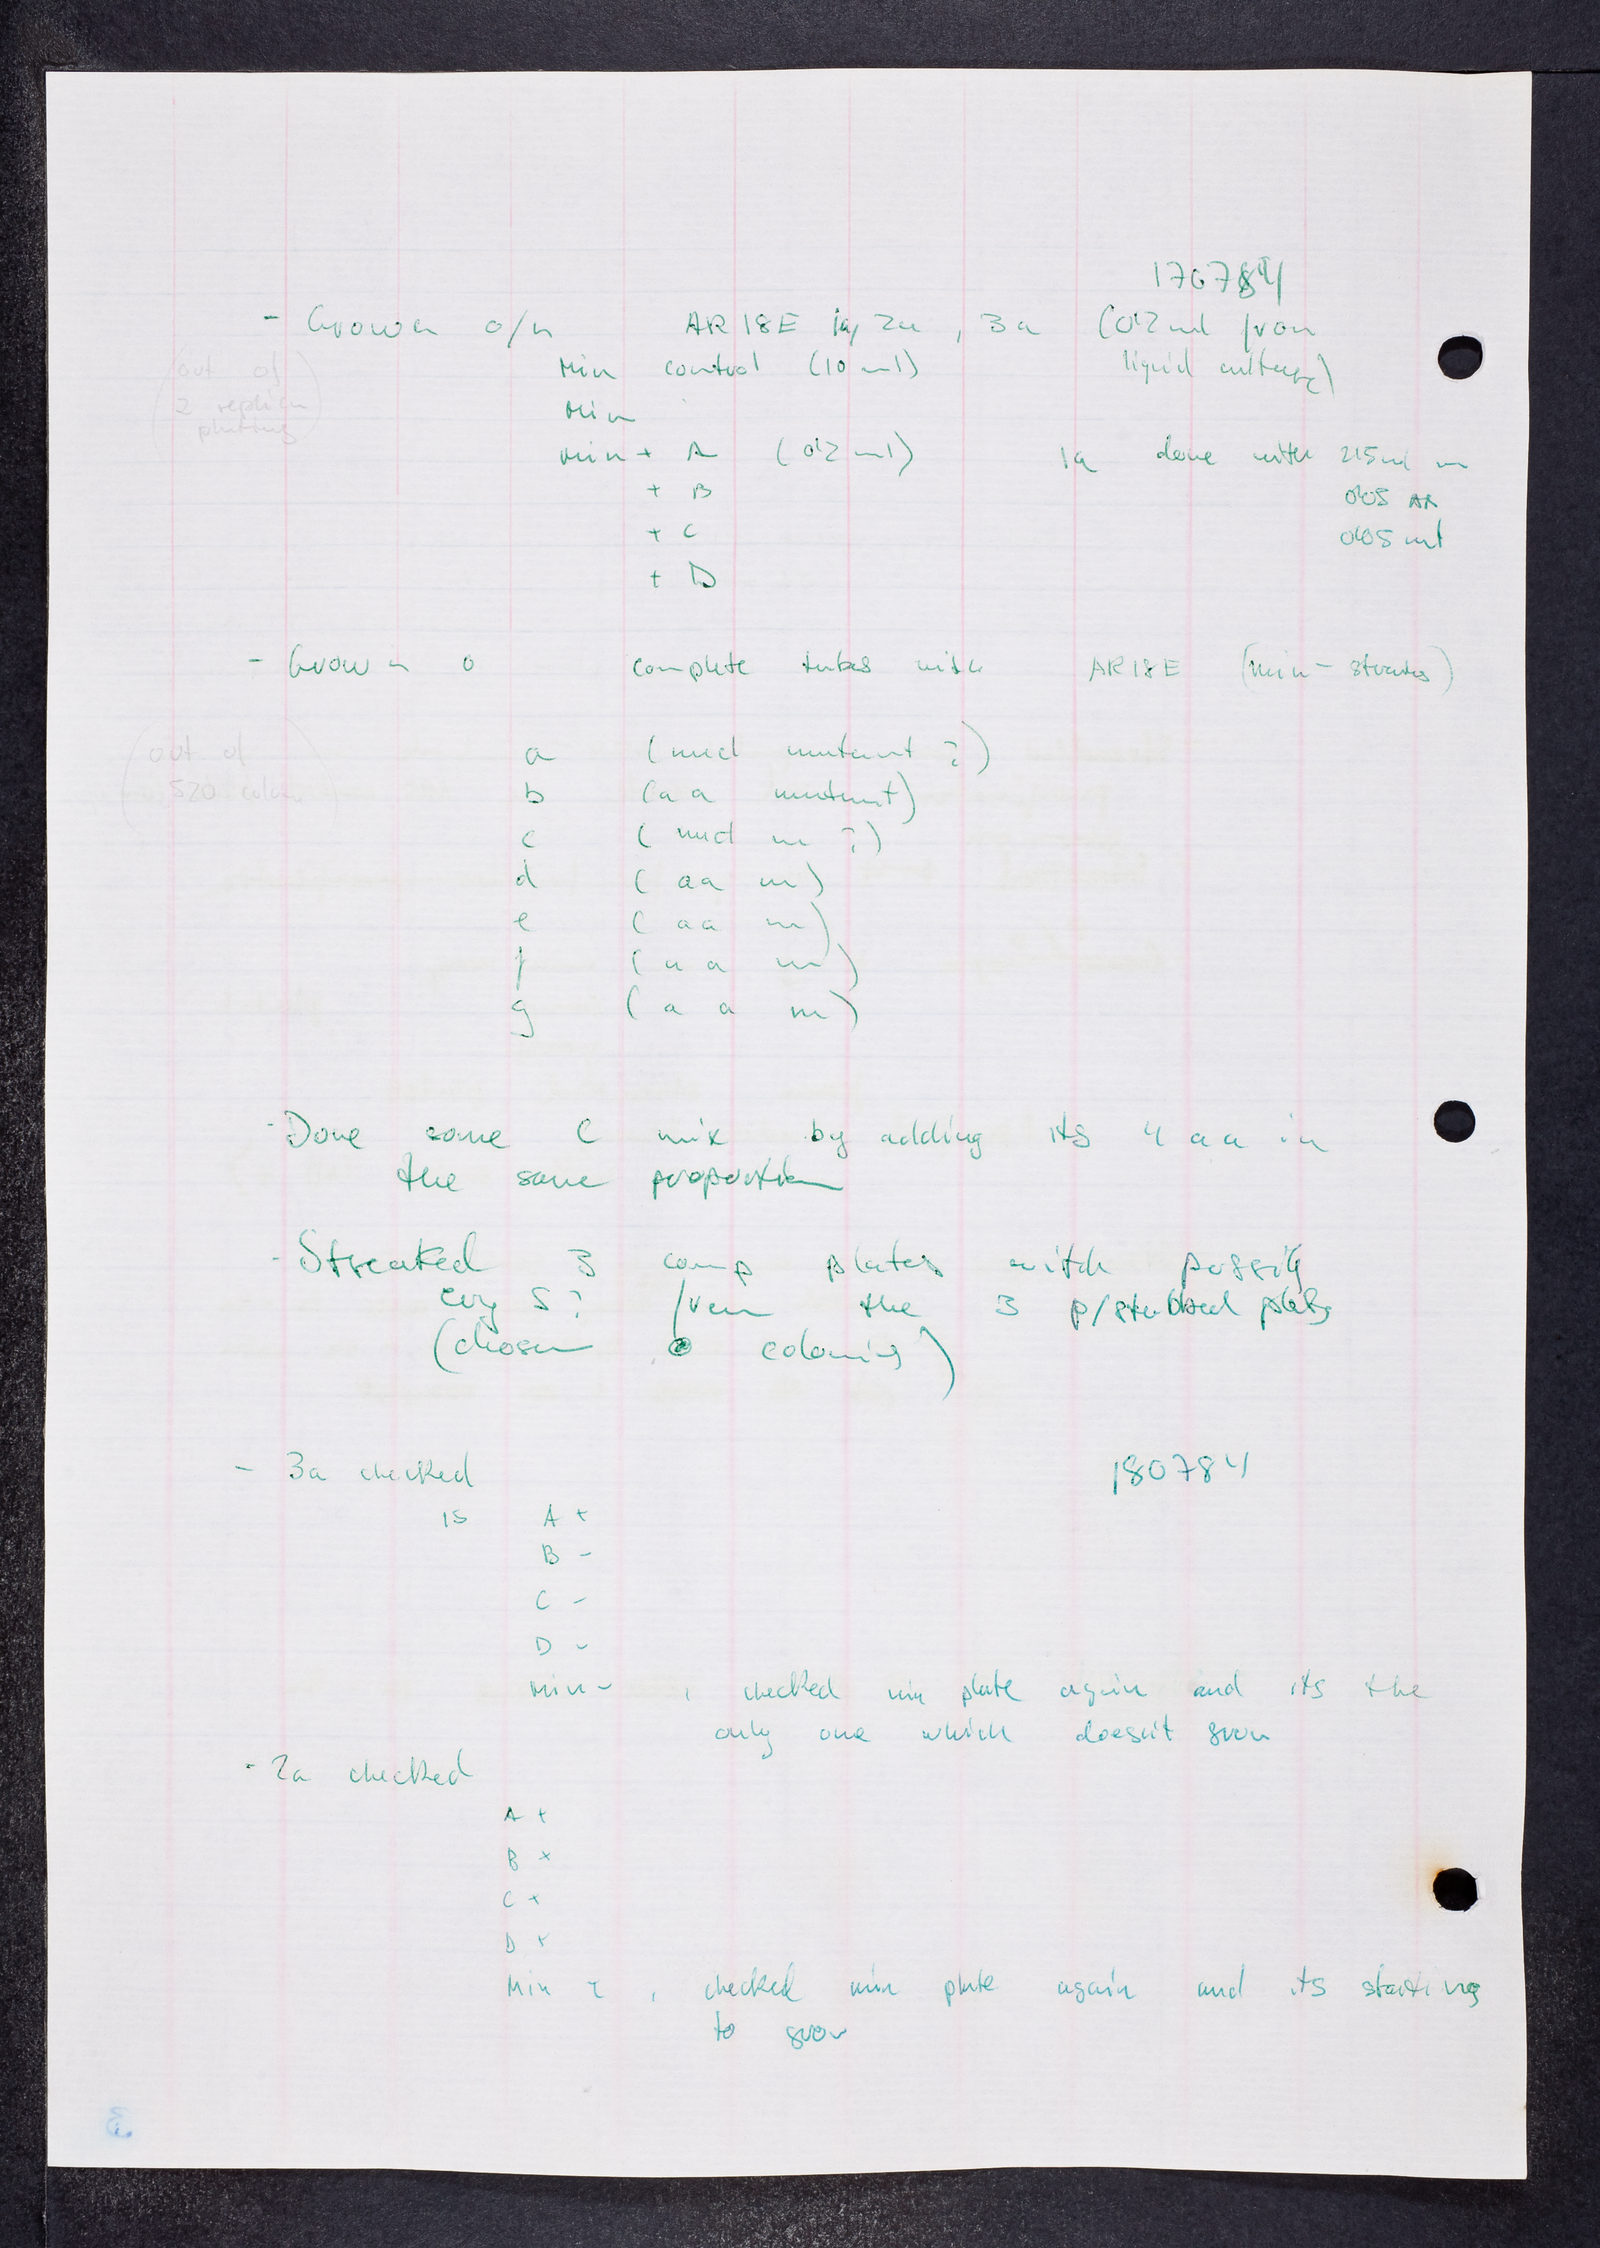 170784
- Grown o/n AR18E 1a, 2a, 3a (0'2 ml from
(out of Min control (10 ml) liquid culture)
2 replica Min
plating) min + A (0'2 ml) 1a done with 2'15 ml m
+ B 0'05 AR
+ C 0'05 ml
+ D
- Grown o complete tubes with AR18E (min - streaks)
(out of a (nucl mutant ?)
520 colon) b (aa mutant)
c (nucl m ?)
d (aa m)
e (aa m)
f (aa m)
g (aa m)
- Done some C mix by adding its 4 aa in
the same proportion
- Streaked 3 comp plates with possibly
cry S? from the 3 p/stubbed plates
(chosen colonies)
- 3a checked 180784
is A +
B -
C -
D -
Min - , checked min plate again and its the
only one which doesn't grow
- 2a checked
A +
B +
C +
D +
Min , checked min plate again and its starting
to grow
3